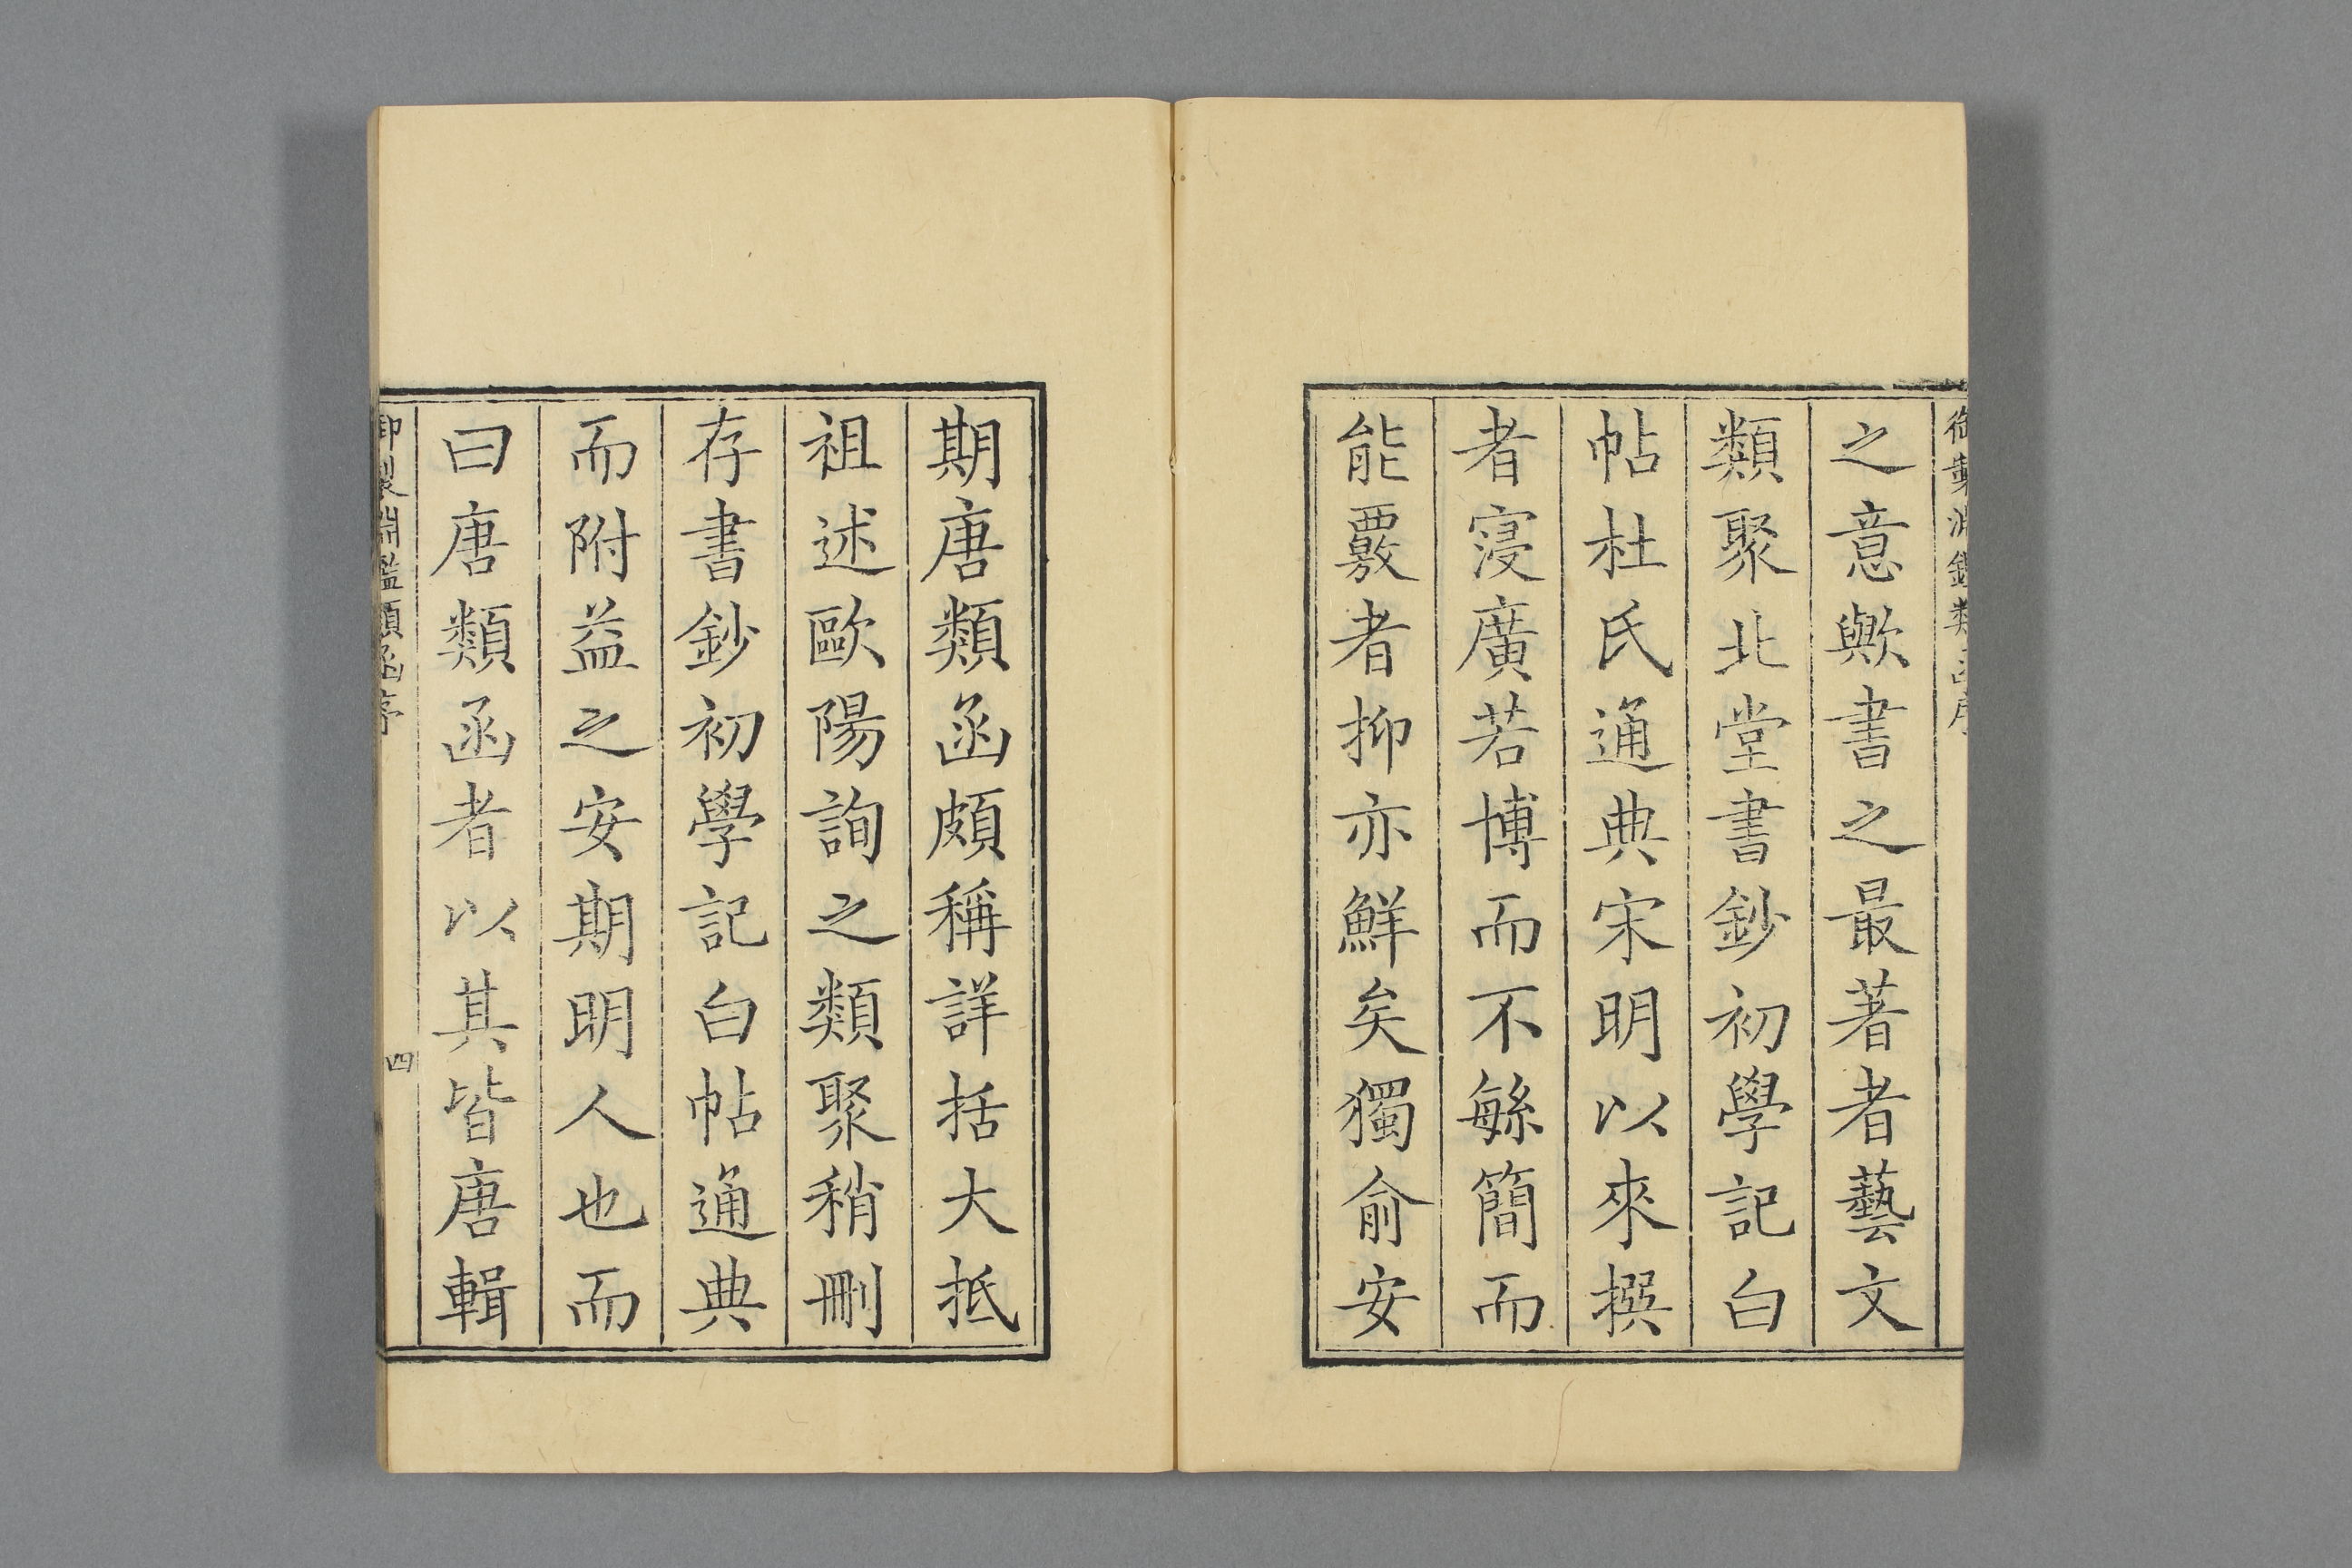 御製淵鑑類函序
之意歟書之最著者藝文
類聚北堂書鈔初學記白
帖杜氏通典宋明以來撰
者寖廣若博而不緐簡而
能覈者抑亦鮮矣獨俞安
期唐類函頗稱詳括大抵
祖述歐陽詢之類聚稍刪
存書鈔初學記白帖通典
而附益之安期明人也而
曰唐類函者以其皆唐輯
御製淵鑑類函序
四